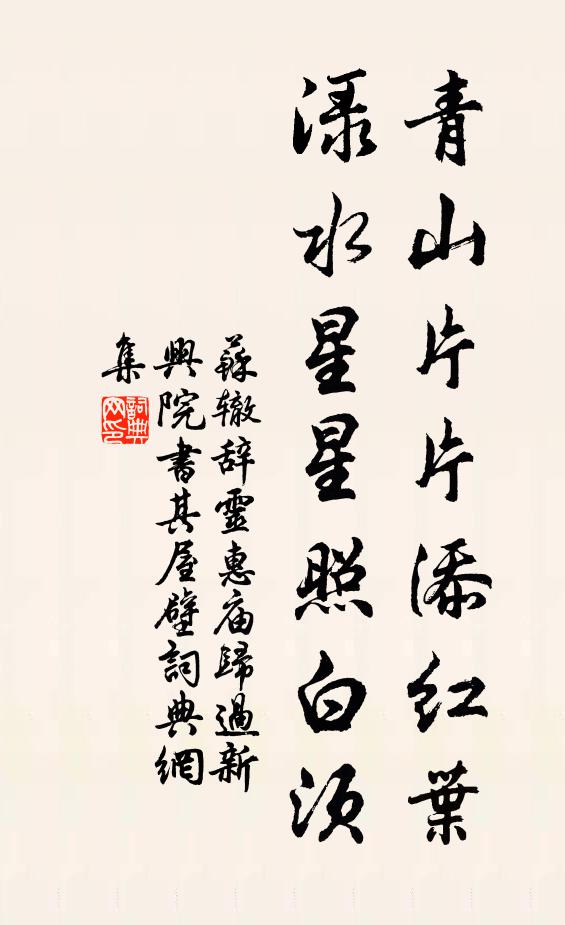 青山片片添红葉
渌水星星照白须
蘇辙辞靈惠庙歸過新
興院書其屋壁詞典網
集
詞典
网印